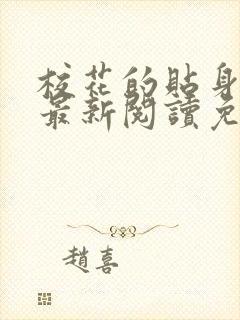 校花的貼身
最新閱讀免
趙喜